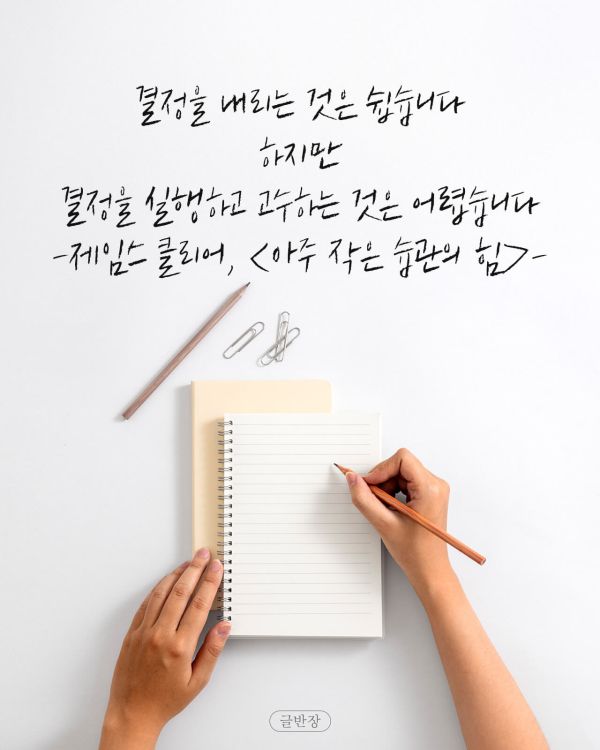 결정을 내리는 것은 쉽습니다
하지만
결정을 실행하고 고수하는 것은 어렵습니다
-제임스 클리어, <아주 작은 습관의 힘>-
글반장